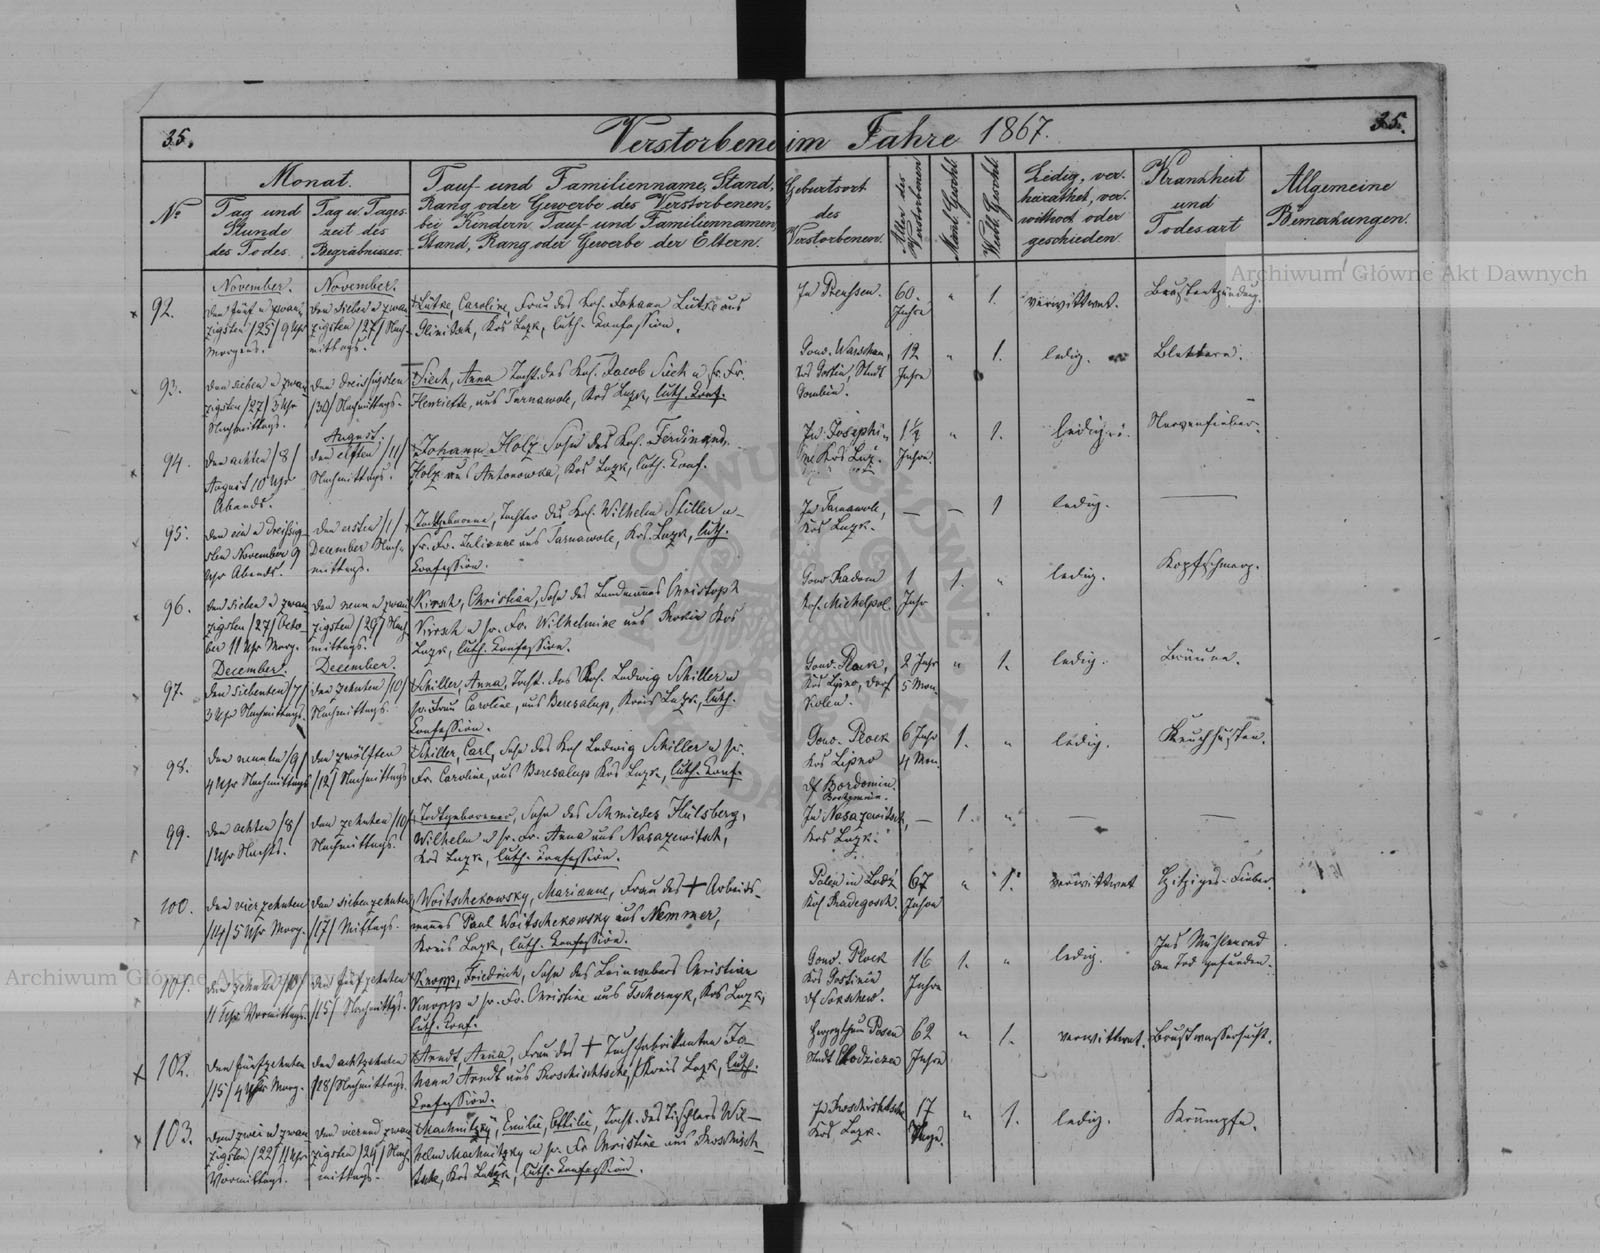 35.
35.
Verstorbene im Jahre 1867.
No
Monat.
Tag und Stunde des Todes.
Tag u. Tages-zeit des Begräbnisses.
Tauf- und Familienname, Stand,
Rang oder Gewerbe des Verstorbenen,
bei Kindern Tauf- und Familiennamen,
Stand, Rang oder Gewerbe der Eltern.
Geburtsort
des
Verstorbenen.
Alter des Verstorbenen
Männl. Geschl.
Weibl. Geschl.
Ledig, ver-
heirathet, ver-
wittwet oder
geschieden.
Krankheit
und
Todesart
Allgemeine
Bemerkungen.
Archiwum Główne Akt Dawnych
November.
November.
92.
den fünf u zwan-
zigsten /25/ 9 Uhr
Morgens.
den sieben u zwan-
zigsten /27/ Nach-
mittags.
Lütke, Caroline, Frau des Kol. Johann Lütke aus
Kos Luzk, luth. Konfession.
In Preussen.
60.
Jahre
1.
verwittwet.
Brustentzündung.
93.
den sieben u zwan-
zigsten /27/ 3 Uhr
Nachmittags.
den dreissigsten
/30/ Nachmittags.
Sieck, Anna Tocht. des Kol. Jacob Sieck u sr. Fr.
Henriette, aus Tarnawole, Kos Luzk, luth. Konf.
Gouv. Warschau,
Kos Gostin, Stadt
Gombin.
12
Jahre
1.
ledig.
Blattern.
94.
den achten /8/
August 10 Uhr
Abends.
August.
den elften /11/
Nachmittags.
Johann Holz Sohn des Kol. Ferdinand
Holz aus Antonowka, Kos Luzk, luth. Konf.
In Josephi-
ne Kos Luz.
1½
Jahre.
1.
ledig.
Nervenfieber.
95.
den ein u dreissig-
sten November 9
Uhr Abends.
den ersten /1/
December Nach-
mittags.
Todtgeborene, Tochter des Kol. Wilhelm Stiller u
sr. Fr. Julianne aus Tarnawole, Kos. Luzk, luth.
Konfession.
In Tarnawole,
Kos Luzk.
1
ledig.
96.
den sieben u zwan-
zigsten /27/ Octo-
ber 11 Uhr Morg.
den neun u zwan-
zigsten /29/ Nach-
mittags.
Kirsch, Christian, Sohn des Landmannes Christoph
Kirsch u sr. Fr. Wilhelmine aus Kos
Luzk, luth. Konfession.
Gouv Radom
Kol. Michelpol.
1
Jahr
1.
ledig.
Kopfschmerz.
December.
December.
97.
den siebenten /7/
3 Uhr Nachmittags.
den zehnten /10/
Nachmittags.
Schiller, Anna, Tocht. des Kol. Ludwig Schiller u
sr. Frau Caroline, aus Beresalup, Kreis Luzk, luth.
Konfession.
Gouv. Plock,
Kos Lipno, Dorf
Kolen.
2 Jahr
5 Mon.
1.
ledig.
Bräune.
98.
den neunten /9/
4 Uhr Nachmittags
den zwölften
/12/ Nachmittags
Schiller, Carl, Sohn des Kol Ludwig Schiller u sr.
Fr. Caroline, aus Beresalup Kos Luzk, luth. Konf.
Gouv. Plock
Kos Lipno
df Bordomin.
6 Jahr
4 Mon.
1.
ledig.
Keuchhusten.
99.
den achten /8/
1 Uhr Nachts.
den zehnten /10/
Nachmittags.
Todtgeborener, Sohn des Schmiedes Hülsberg,
Wilhelm u sr. Fr. Anna aus Nasazewitsch,
Kos Luzk, luth. Konfession.
In Nasazewitsch,
Kos Luzk.
1.
100.
den vierzehnten
/14/ 5 Uhr Morg.
den siebenzehnten
/17/ Mittags.
Woitschekowsky, Marianne, Frau des + Arbeits-
mannes Paul Woitschekowsky aus Nemmer,
Kreis Luzk, luth. Konfession.
Polen in Lodz
Kol Radegosch.
67
Jahre
1.
verwittwet
hitziges Fieber.
Archiwum Główne Akt Dawnych
101.
den zehnten /10/
11 Uhr Vormittags.
den fünfzehnten
/15/ Nachmittgs.
Knopp, Friedrich, Sohn des Leinwebers Christian
Knopp u sr. Fr. Christine aus Tschernyk, Kos Luzk,
luth. Konf.
Gouv. Plock
Kos Gostinin
df Sokschew.
16
Jahre
1.
ledig.
Ins Mühlenrad
den Tod gefunden.
102.
den fünfzehnten
/15/ 4 Uhr Morg.
den achtzehnten
/18/ Nachmittags.
Arndt, Anna, Frau des + Tuchfabrikanten Jo-
hann Arndt aus Roschischtsche, Kreis Luzk, luth.
Konfession.
Herzogthum Posen
Stadt Chodziesen
62
Jahre
1.
verwittwet.
Brustwassersucht.
103.
den zwei u zwan-
zigsten /22/ 11 Uhr
Vormittags.
den vierund zwan-
zigsten /24/ Nach-
mittags.
Machnitzky, Emilie, Ottilie, Tocht. des Tischlers Wil-
helm Machnitzky u sr. Fr Christine aus Roschisch-
tsche, Kos Luzk, luth. Konfession.
In Roschischtsche
Kos. Luzk.
17
Tage.
1.
ledig.
Krämpfe.